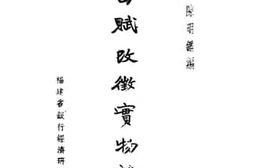 陳明鑑編
賦改徵實物
福建省銀行經濟研